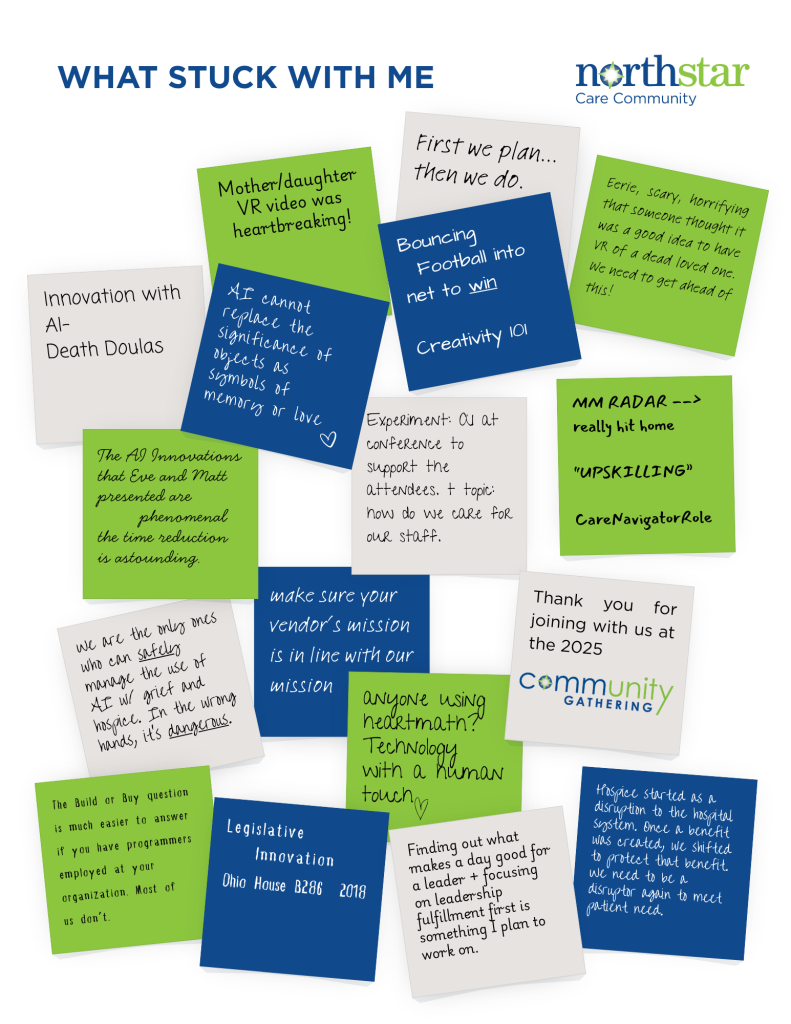 WHAT STUCK WITH ME
northstar
Care Community
First we plan...
then we do.
Mother/daughter
VR video was
heartbreaking!
Eerie, scary, horrifying
that someone thought it
was a good idea to have
VR of a dead loved one.
We need to get ahead of
this!
Bouncing
Football into
net to win
Creativity 101
Innovation with
AI-
Death Doulas
AI cannot
replace the
significance of
objects as
symbols of
memory or love
MM RADAR -->
really hit home
"UPSKILLING"
CareNavigatorRole
Experiment: OJ at
conference to
support the
attendees. + topic:
how do we care for
our staff.
The AI Innovations
that Eve and Matt
presented are
phenomenal
the time reduction
is astounding.
make sure your
vendor's mission
is in line with our
mission
Thank you for
joining with us at
the 2025
community
GATHERING
we are the only ones
who can safely
manage the use of
AI w/ grief and
hospice. In the wrong
hands, it's dangerous.
anyone using
heartmath?
Technology
with a human
touch
The Build or Buy question
is much easier to answer
if you have programmers
employed at your
organization. Most of
us don't.
Legislative
Innovation
Ohio House B286 2018
Finding out what
makes a day good for
a leader + focusing
on leadership
fulfillment first is
something I plan to
work on.
Hospice started as a
disruption to the hospital
system. Once a benefit
was created, we shifted
to protect that benefit.
we need to be a
disruptor again to meet
patient need.